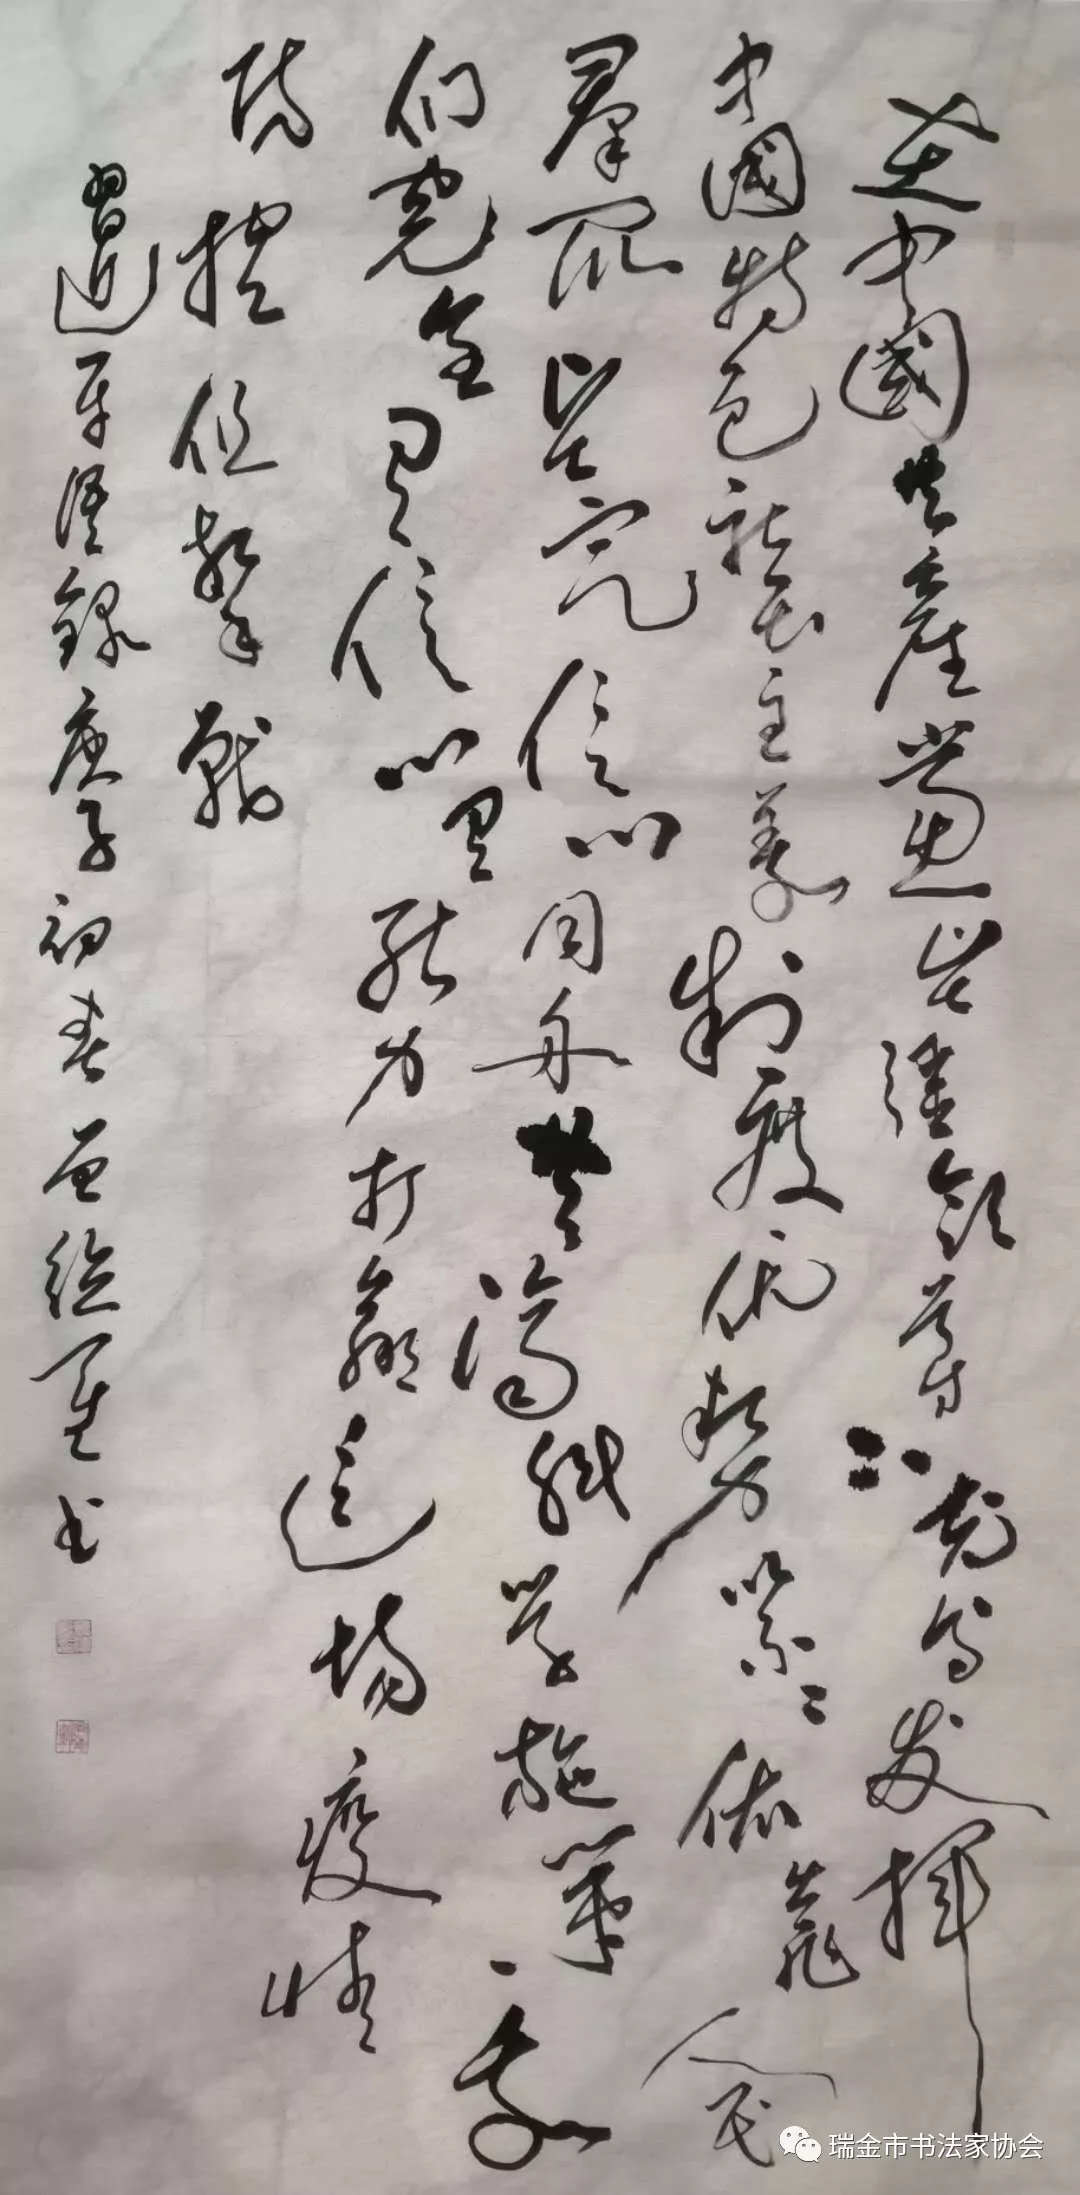 在中国共产党坚强领导下充分发挥
中国特色社会主义制度优势紧紧依靠人民
群众坚定信心同舟共济科学施策我
们完全有信心有能力打赢这场疫情
防控阻击战
习近平语录庚子初春书
瑞金市书法家协会